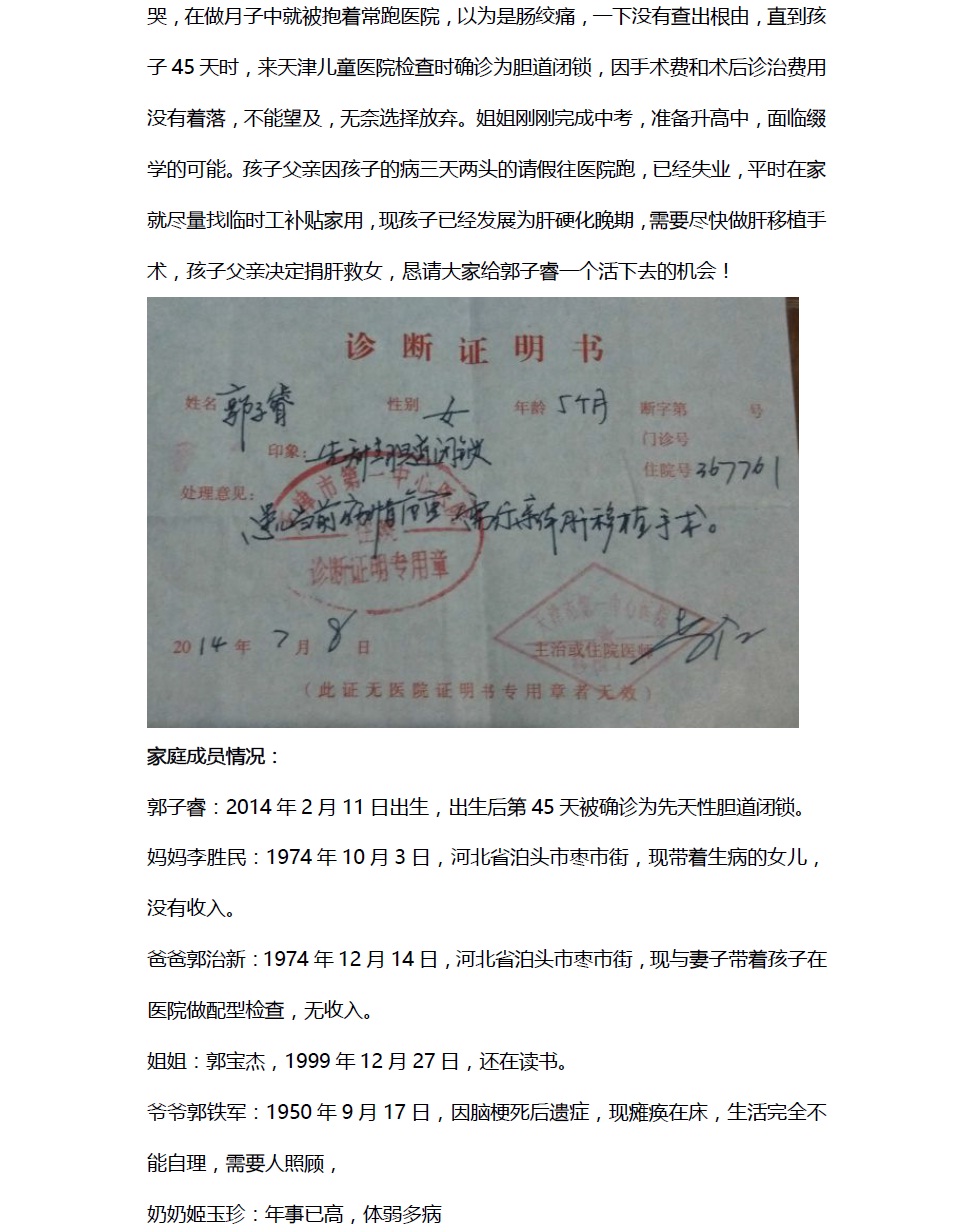 哭，在做月子中就被抱着常跑医院，以为是肠绞痛，一下没有查出根由，直到孩
子 45 天时，来天津儿童医院检查时确诊为胆道闭锁，因手术费和术后诊治费用
没有着落，不能望及，无奈选择放弃。姐姐刚刚完成中考，准备升高中，面临缀
学的可能。孩子父亲因孩子的病三天两头的请假往医院跑，已经失业，平时在家
就尽量找临时工补贴家用，现孩子已经发展为肝硬化晚期，需要尽快做肝移植手
术，孩子父亲决定捐肝救女，恳请大家给郭子睿一个活下去的机会！
诊断证明书
姓名 郭子睿 性别 女 年龄 5个月 断字第 号
门诊号
印象：先天性胆道闭锁 住院号 367761
处理意见：
患儿当前病情危重，需行亲体肝移植手术。
天津市第一中心医院
诊断证明专用章
天津市第一中心医院
主治或住院医师
2014 年 7 月 8 日
（此证无医院证明书专用章者无效）
家庭成员情况：
郭子睿：2014 年 2 月 11 日出生，出生后第 45 天被确诊为先天性胆道闭锁。
妈妈李胜民：1974 年 10 月 3 日，河北省泊头市枣市街，现带着生病的女儿，
没有收入。
爸爸郭治新：1974 年 12 月 14 日，河北省泊头市枣市街，现与妻子带着孩子在
医院做配型检查，无收入。
姐姐：郭宝杰，1999 年 12 月 27 日，还在读书。
爷爷郭铁军：1950 年 9 月 17 日，因脑梗死后遗症，现瘫痪在床，生活完全不
能自理，需要人照顾，
奶奶姬玉珍：年事已高，体弱多病